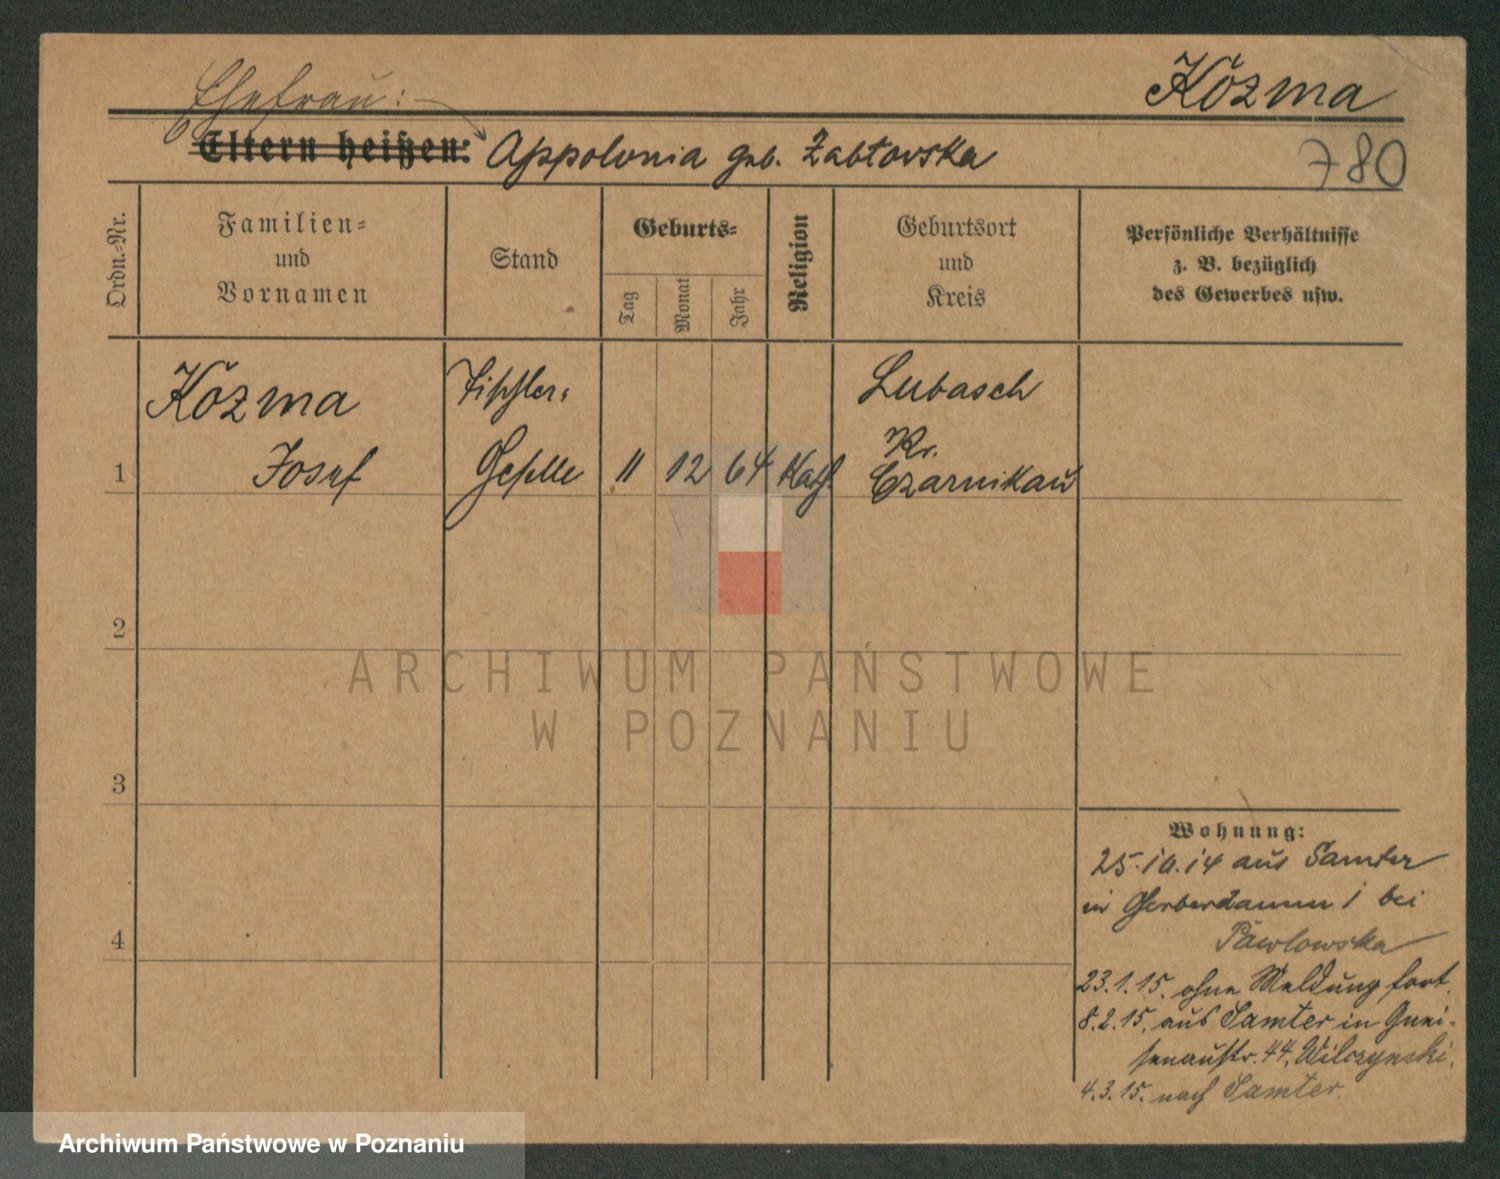 Kozma
Ehefrau:
Eltern heißen: Appolonia geb. Zabtovska
780
Ordn.-Nr.
Familien-
und
Vornamen
Stand
Geburts-
Tag
Monat
Jahr
Religion
Geburtsort
und
Kreis
Persönliche Verhältnisse
z. B. bezüglich
des Gewerbes usw.
Kozma
Josef
Tischler-
Geselle
11 12 64 Kath.
Lubasch
Kr.
Czarnikau
1
2
3
4
ARCHIWUM PAŃSTWOWE
W POZNANIU
Wohnung:
25.10.14 aus Samter
in Gerberdamm 1 bei
Pawlowska
23.1.15. ohne Meldung fort.
8.2.15. aus Samter in Gnei-
senaustr. 44, Wilczynski.
4.3.15. nach Samter.
Archiwum Państwowe w Poznaniu